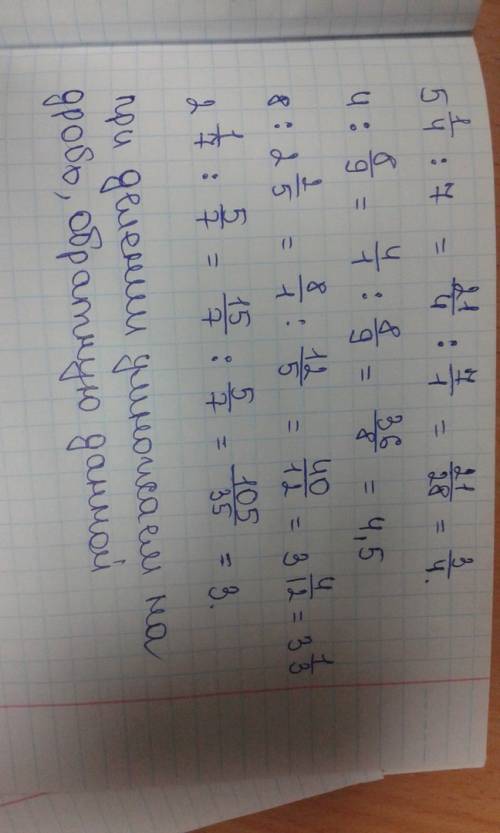 5 1/4 : 7 = 21/4 : 7/1 = 21/28 = 3/4.
4 : 8/9 = 4/1 : 8/9 = 36/8 = 4,5
8 : 2 2/5 = 8/1 : 12/5 = 40/12 = 3 4/12 = 3 1/3
2 1/7 : 5/7 = 15/7 : 5/7 = 105/35 = 3.
при делении умножаем на
дробь, обратную данной